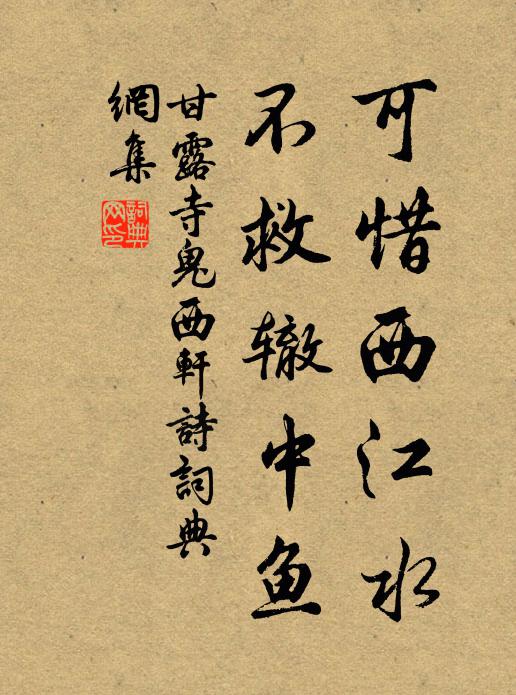 可惜西江水
不救辙中鱼
甘露寺鬼西軒詩詞典
網集
詞典网印